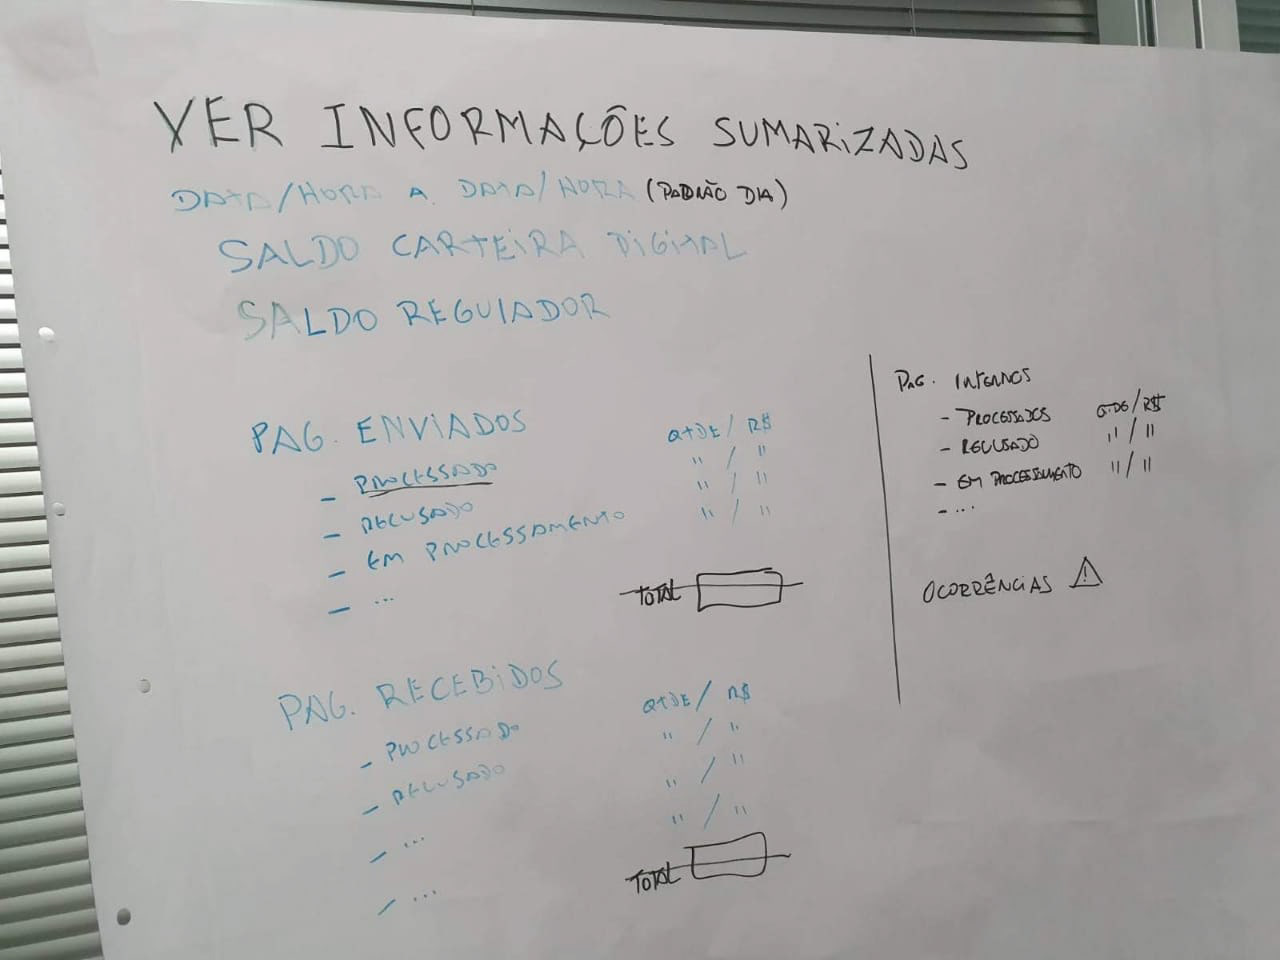 VER INFORMAÇÕES SUMARIZADAS
DATA/HORA A DATA/HORA (PADRÃO DIA)
SALDO CARTEIRA DIGITAL
SALDO REGULADOR
PAG. ENVIADOS QTDE / R$
- PROCESSADO " / "
- RECUSADO " / "
- EM PROCESSAMENTO " / "
- ...
TOTAL
PAG. RECEBIDOS QTDE / R$
- PROCESSADO " / "
- RECUSADO " / "
- ... " / "
- ...
TOTAL
PAG. INTERNOS
- PROCESSADOS QTDE / R$
- RECUSADO " / "
- EM PROCESSAMENTO " / "
- ...
OCORRÊNCIAS ⚠